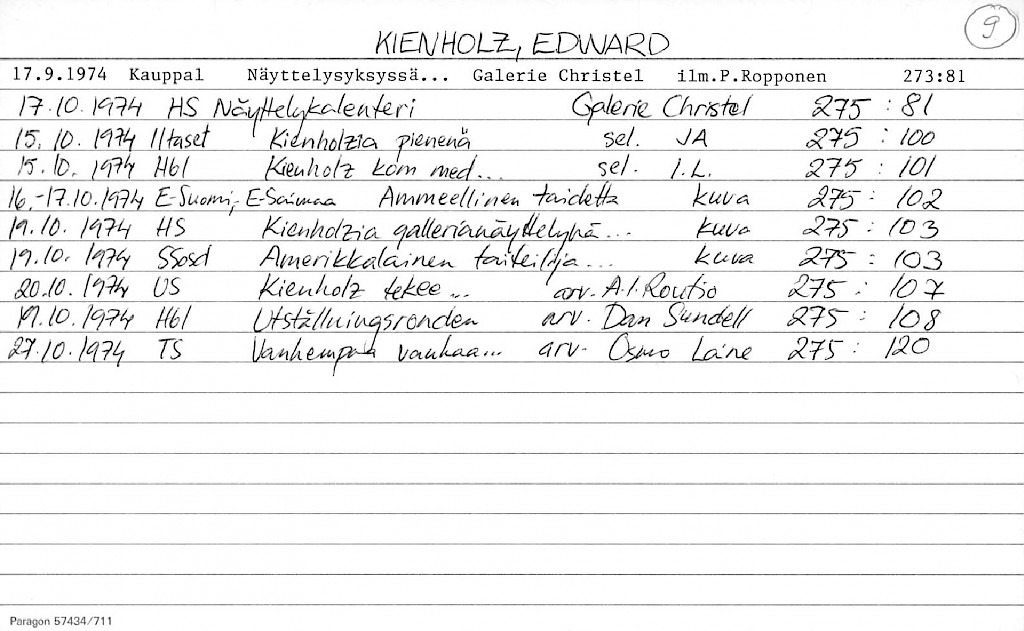 9
KIENHOLZ, EDWARD
17.9.1974 Kauppal Näyttelysyksyssä... Galerie Christel ilm.P.Ropponen 273:81
17.10.1974 HS Näyttelykalenteri Galerie Christel 275:81
15.10.1974 Iltaset Kienholzia pienenä sel. JA 275:100
15.10.1974 Hbl Kienholz kom med... sel. I.L. 275:101
16.-17.10.1974 E-Suomi, E-Saimaa Ammeellinen taidetta kuva 275:102
19.10.1974 HS Kienholzia gallerianäyttelynä... kuva 275:103
19.10.1974 SSosd Amerikkalainen taiteilija... kuva 275:103
20.10.1974 US Kienholz tekee... arv. A.I.Routio 275:107
19.10.1974 Hbl Utställningsronden arv. Dan Sundell 275:108
27.10.1974 TS Vanhempaa vanhaa... arv. Osmo Laine 275:120
Paragon 57434/711